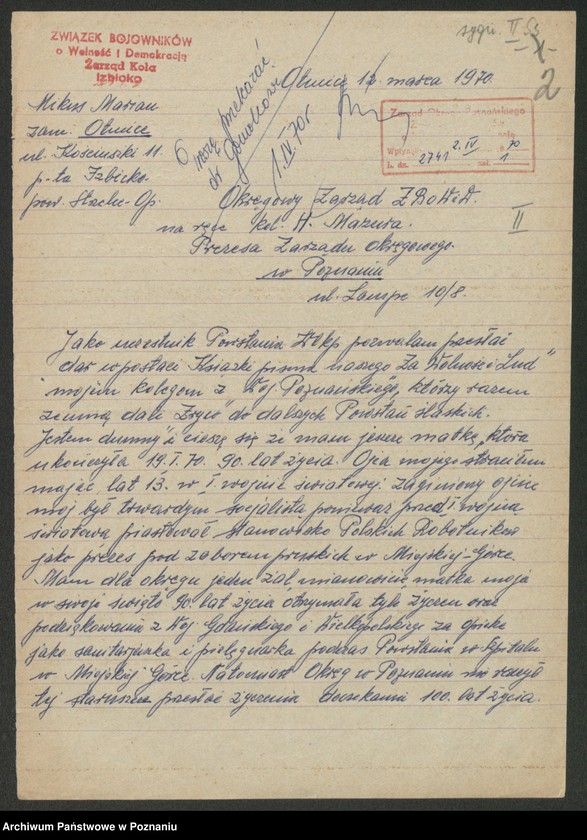 ZWIĄZEK BOJOWNIKÓW
o Wolność i Demokrację
Zarząd Koła
Izbicko
sygn. II 53
2
Otmice 12 marca 1970.
Mikss Marian
zam. Otmice
ul. Kościuszki 11.
p-ta Izbicko.
pow. Strzelce-Op.
proszę przekazać
1.IV.70r
Zarząd Okręgu Poznańskiego
2. IV 70
L. dz. 2741 zał. 1
Okręgowy Zarząd ZBoWiD.
II
na ręce kol. H. Mazura.
Prezesa Zarządu Okręgowego.
w Poznaniu
ul. Lampe 10/8.
Jako uczestnik Powstania Wlkp pozwalam przesłać
dar w postaci Książki pisma naszego Za Wolność i Lud"
mojem kolegom z Woj Poznańskiego, którzy razem
zemną dali Zryw" do dalszych Powstań Śląskich.
Jestem dumny" i cieszę się że mam jeszcze matkę, która
ukończyła 19.I.70. 90. lat życia. Ojca mojego straciłem
mając lat 13. w I. wojnie światowej zaginiony ojciec
mój był twardym socjalistą ponieważ przed I. wojną
światową piastował stanowisko Polskich Robotników
jako prezes pod zaborem pruskich w Miejskiej-Górce.
Mam dla okręgu jeden żal, mianowicie matka moja
w swoje święto 90. lat życia, otrzymała tyle życzeń oraz
podziękowania z Woj Gdańskiego i Wielkopolskiego za opiekę
jako sanitarjuszka i pielęgniarka podczas Powstania w Szpitalu
w Miejskiej Górce. Natomiast Okręg w Poznaniu nie raczył
tej staruszce przesłać życzenia doczekania 100. lat życia.
Archiwum Państwowe w Poznaniu